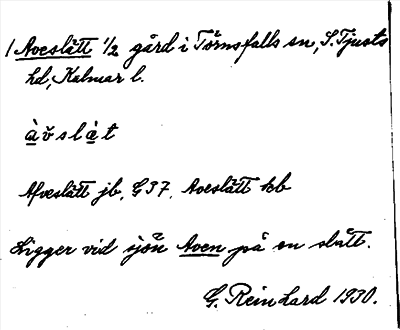 / Aveslätt 1/2 gård i Törnsfalls sn, S. Tjusts
hd, Kalmar l.
àv̆slàt
Afveslätt jb. G 37. Aveslätt kb
Ligger vid sjön Aven på en slätt.
G. Reinhard 1930.